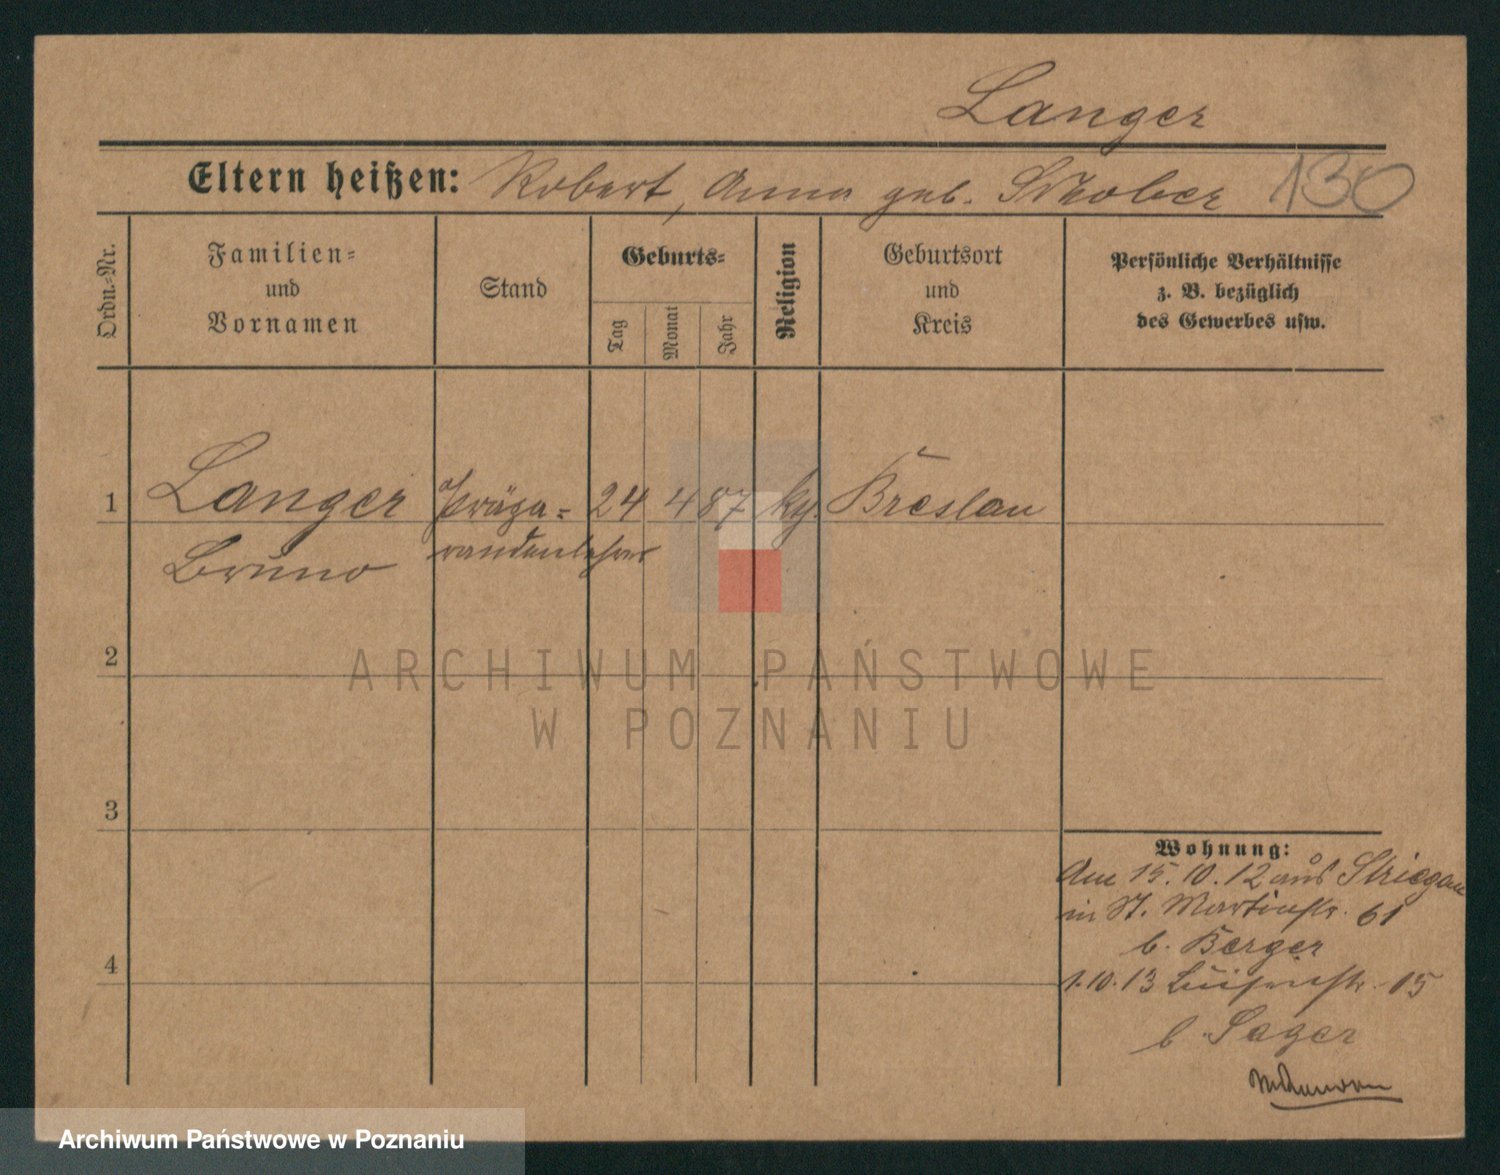 Langer
Eltern heißen: Robert, Anna geb. Schober 130
Ordn.-Nr.
Familien- und Vornamen
Stand
Geburts-
Tag
Monat
Jahr
Religion
Geburtsort und Kreis
Persönliche Verhältnisse z. B. bezüglich des Gewerbes usw.
1 Langer Präpa= 24 4 87 Breslau
Bruno randenlehrer
2
3
4
ARCHIWUM PAŃSTWOWE
W POZNANIU
Wohnung:
Am 15.10.12 aus Striegau
in St. Martinstr. 61
b. Berger
1.10.13 Luisenstr. 15
b. Sager
Archiwum Państwowe w Poznaniu